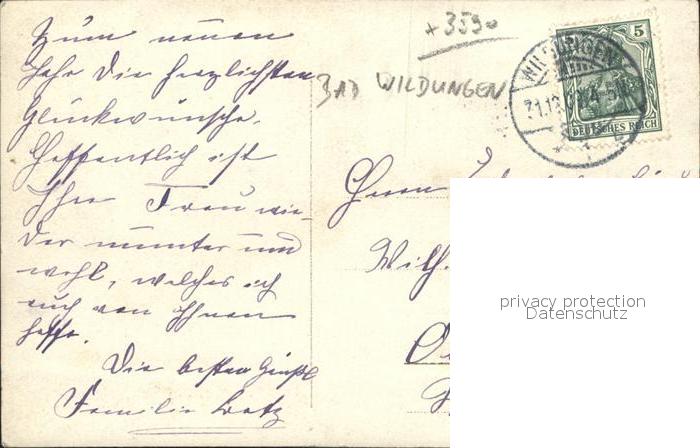 Zum neuen
Jahr die herzlichsten
Glückwünsche.
Hoffentlich ist
Ihre Frau wie-
der munter und
wohl, welches ich
auch von Ihnen
hoffe.
Die besten Grüße
Familie
BAD WILDUNGEN
WILDUNGEN
5
DEUTSCHES REICH
Herrn
Wilh.
privacy protection
Datenschutz